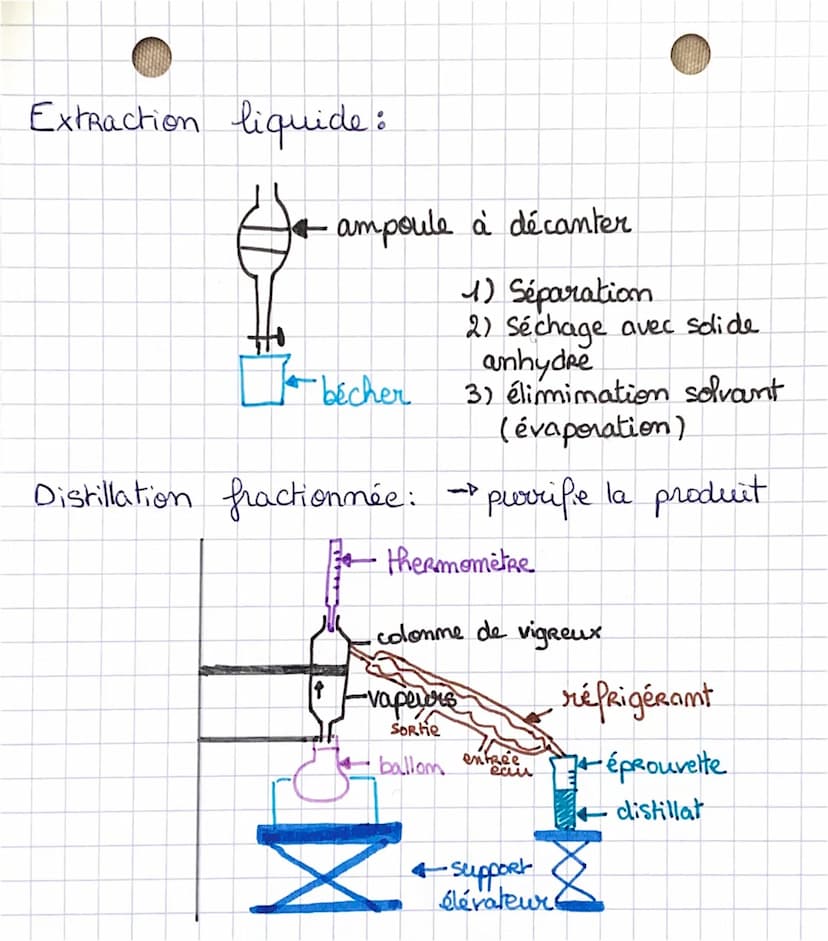 Extraction liquide :
ampoule à décanter
1) Séparation
2) Séchage avec solide
anhydre
3) élimination solvant
(évaporation)
bécher
Distillation fractionnée : → purrifie la produit
thermomètre
colonne de vigreux
vapeurs
réfrigérant
sortie
entrée
eau
ballon
éprouvette
distillat
support
élévateur